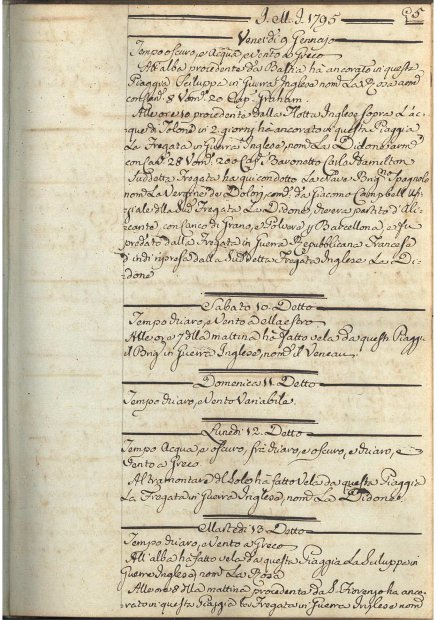 J. M. J. 1795
95
Venerdì 9 Gennaio
Tempo oscuro, e Acqua, e Vento a Greco
All'alba procedente da Bastia hà ancorato in questa
Piaggia Sciluppa in Guerra Inglese nom.ta La Rosa arm.
con Can. 8 Vom. 20 Cap. Graham.
Alle ore 10 procedente dalla Flotta Inglese sopra l'ac
que di Tolone in 2. giorni hà ancorato in questa Piaggia
La Fregata in Guerra Inglese, nom. La Didone arm.
con Can. 28 Vom. 200 Cap. Baronetto Carlo Hamilton
Suddetta Fregata hà qui condotto La Nave Brig. Spagnolo
nom. La Vergine de Dolori, cond. da Giacomo Campbell Uf
ziale della Sud. Fregata La Didone, che era partito d'Ali
cante, con carico di Grano, e Polvere p Barcellona, e fu
predato dalla Fregata in Guerra Repubblicana Francese
e indi ripresa dalla Suddetta Fregata Inglese La Di
done
Sabato 10. Detto
Tempo chiaro, e Vento a Maestro
Alle ore 7 della mattina hà fatto vela da questa Piaggia
il Brig. in Guerra Inglese, nom. il Veneau
Domenica 11. Detto
Tempo chiaro, e Vento Variabile.
Lunedì 12. Detto
Tempo Acqua, e oscuro, frà chiaro, e oscuro, e chiaro, e
Vento a Greco
Al tramontare del Sole hà fatto vela da questa Piaggia
La Fregata in Guerra Inglese, nom. La Didone.
Martedì 13. Detto
Tempo chiaro, e Vento a Greco
All'alba hà fatto vela da questa Piaggia La Sciluppa in
Guerra Inglese, nom. La Rosa
Alle ore 8 della mattina procedente da S. Fiorenzo hà anco
rato in questa Piaggia La Fregata in Guerra Inglese nom